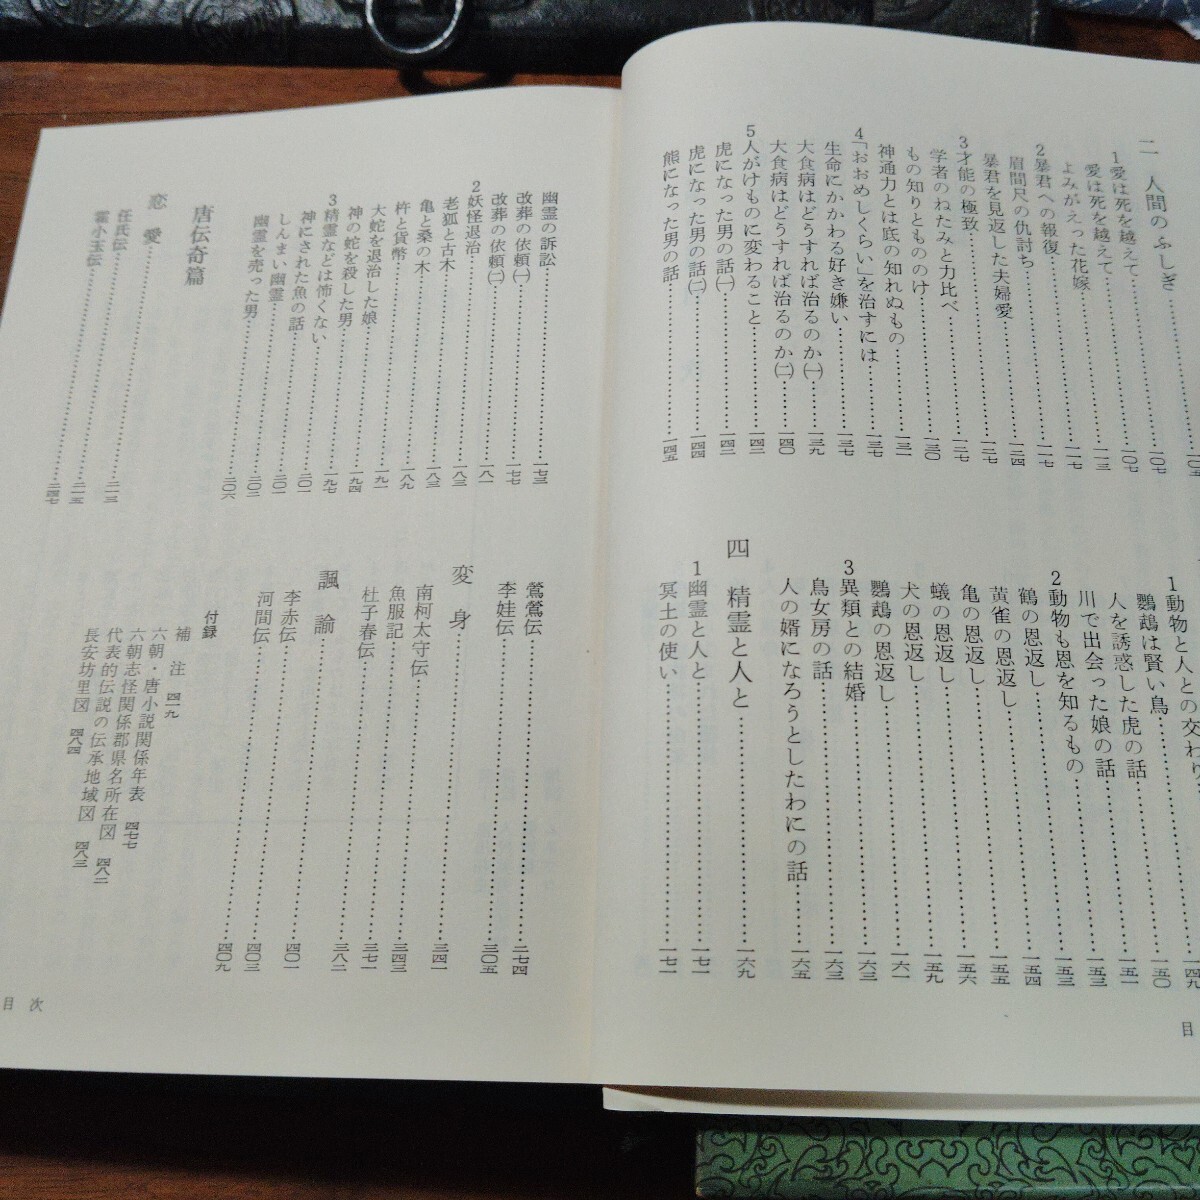 二 人間のふしぎ……一〇五
1愛は死を越えて……一〇七
愛は死を越えて……一〇七
よみがえった花嫁……一一三
2暴君への報復……一一七
眉間尺の仇討ち……一一七
暴君を見返した夫婦愛……一二四
3才能の極致……一二七
学者のねたみと力比べ……一二七
もの知りともののけ……一三〇
神通力とは底の知れぬもの……一三一
4「おおめしくらい」を治すには……一三七
生命にかかわる好き嫌い……一三七
大食病はどうすれば治るのか㈠……一三九
大食病はどうすれば治るのか㈡……一四〇
5人がけものに変わること……一四三
虎になった男の話㈠……一四三
虎になった男の話㈡……一四四
熊になった男の話……一四五
1動物と人との交わり……一四九
鸚鵡は賢い鳥……一五〇
人を誘惑した虎の話……一五一
川で出会った娘の話……一五三
2動物も恩を知るもの……一五三
鶴の恩返し……一五四
黄雀の恩返し……一五五
亀の恩返し……一五六
蟻の恩返し……一五九
犬の恩返し……一六一
鸚鵡の恩返し……一六三
3異類との結婚……一六三
鳥女房の話……一六三
人の婿になろうとしたわにの話……一六五
四 精霊と人と……一六九
1幽霊と人と……一七一
冥土の使い……一七一
目
幽霊の訴訟……一七三
改葬の依頼㈠……一七七
改葬の依頼㈡……一八一
2妖怪退治……一八三
老狐と古木……一八三
亀と桑の木……一八九
杵と貨幣……一九一
大蛇を退治した娘……一九四
神の蛇を殺した男……一九七
3精霊などは怖くない……二〇一
神にされた魚の話……二〇一
しんまい幽霊……二〇三
幽霊を売った男……二〇六
唐伝奇篇
恋愛……二一三
任氏伝……二一五
霍小玉伝……二四七
鶯鶯伝……二七四
李娃伝……三〇五
変身……三四一
南柯太守伝……三四三
魚服記……三七一
杜子春伝……三八二
諷諭……四〇一
李赤伝……四〇三
河間伝……四〇九
付録
補注 四一九
六朝・唐小説関係年表 四七七
六朝志怪関係郡県名所在図 四八二
代表的伝説の伝承地域図 四八三
長安坊里図 四八四
目次